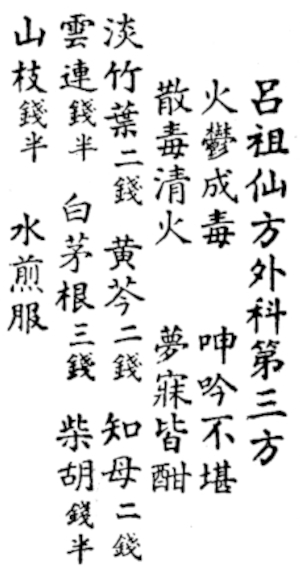 呂祖仙方外科第三方
火鬱成毒 呻吟不堪
散毒清火 夢寐皆酣
淡竹葉二錢 黄芩二錢 知母二錢
雲連錢半 白茅根三錢 柴胡錢半
山枝錢半 水煎服